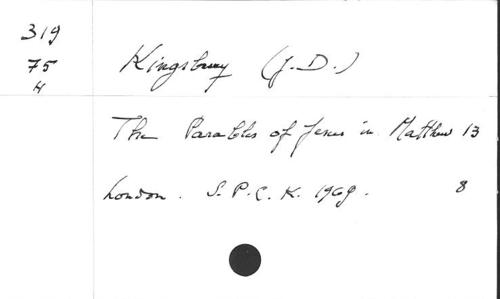 319
75
H
Kingsbury (J.D.)
The Parables of Jesus in Matthew 13
London. S.P.C.K. 1969. 8